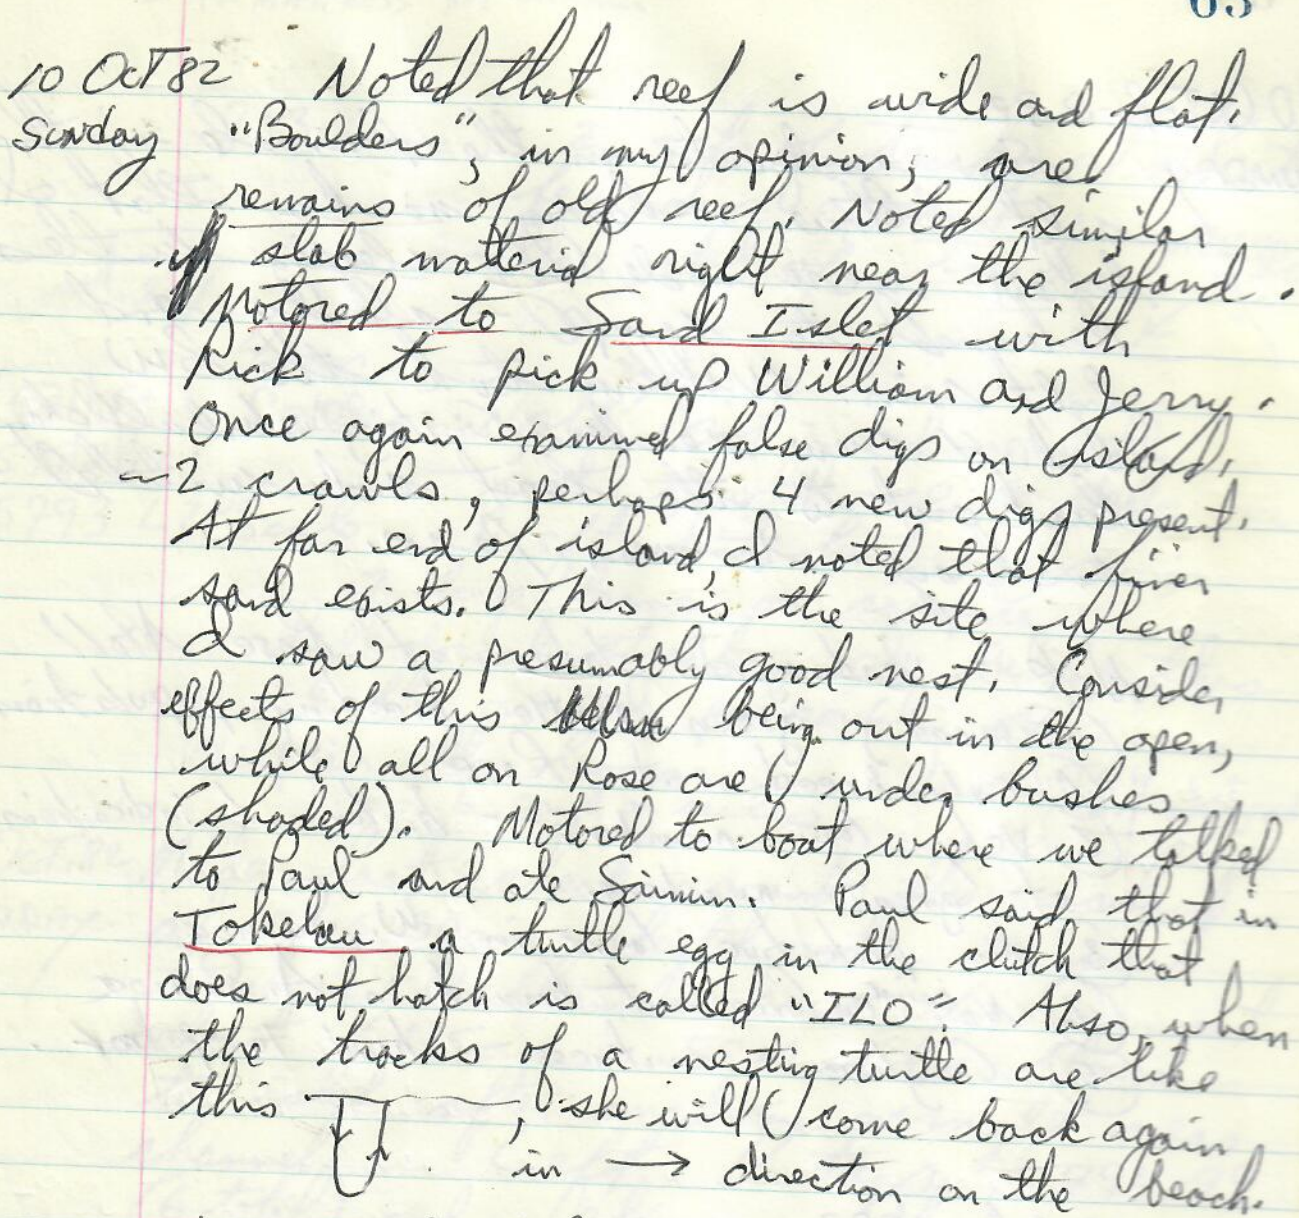 10 OCT 82 Noted that reef is wide and flat.
Sunday "Boulders", in my opinion, are
remains of old reef. Noted similar
slab material right near the island.
Motored to Sand Islet with
Rick to pick up William and Jerry.
Once again examined false digs on island.
~2 crawls, perhaps 4 new digs present.
At far end of island, I noted that finer
sand exists. This is the site where
I saw a presumably good nest. Consider
effects of this being out in the open,
while all on Rose are under bushes
(shaded). Motored to boat where we talked
to Paul and ate Saimin. Paul said that in
Tokelau a turtle egg in the clutch that
does not hatch is called "ILO". Also, when
the tracks of a nesting turtle are like
this , she will come back again
in → direction on the beach.